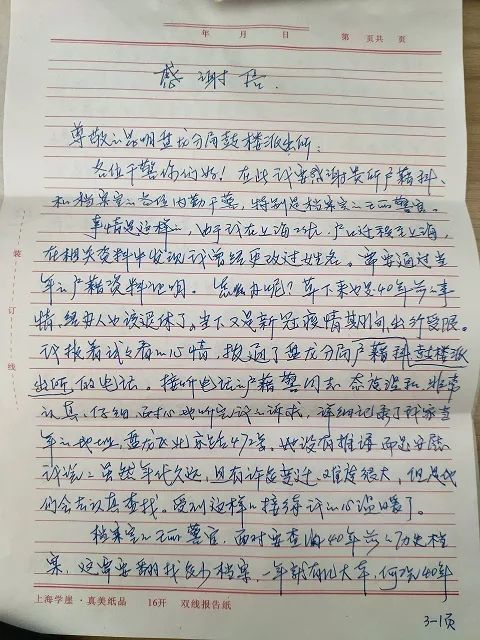 年 月 日 第 页共 页
感谢信.
尊敬的昆明盘龙分局鼓楼派出所:
各位干警你们好!在此我要感谢贵所户籍科、
和档案室的各位内勤干警,特别是档案室的王丽警官。
事情是这样的,由于我在上海工作,户口迁移至上海,
在相关资料中发现我曾经更改过姓名。需要通过当
年的户籍资料证明。怎么办呢?算下来也是40年前的事
情,经办人也该退休了。当下又是新冠疫情期间,出行受限。
我抱着试试看的心情,拨通了盘龙分局户籍科鼓楼派
出所的电话。接听电话的户籍警同志态度温和,非常
认真、仔细、耐心地听完我的诉求,详细记录了我家当
年的地址,盘龙区北京路472号。她没有推诿而是安慰
我说:虽然年代久远,且有许多变迁,难度很大,但是他
们会去认真查找。受到这样的接待我的心温暖了。
档案室的王丽警官,面对要查询40年前的历史档
案,这需要翻找多少档案,一年就有几大本,何况40年
装 订 线
上海学崖·真美纸品 16开 双线报告纸
3-1页